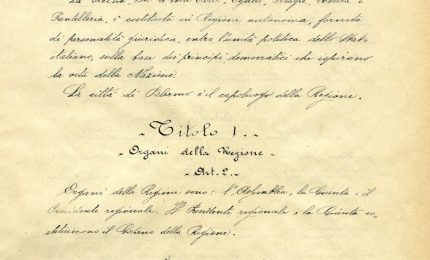 La Sicilia, con le isole Eolie, Egadi, Pelagie, Ustica e
Pantelleria, è costituita in Regione autonoma, fornita
di personalità giuridica, entro l'unità politica dello Stato
italiano, sulla base dei principi democratici che ispirano
la vita della Nazione.
La città di Palermo è il capoluogo della Regione.
- Titolo I. -
- Organi della Regione -
- Art. 2. -
Organi della Regione sono: l'Assemblea, la Giunta e il
Presidente regionale. Il Presidente regionale e la Giunta co-
stituiscono il Governo della Regione.